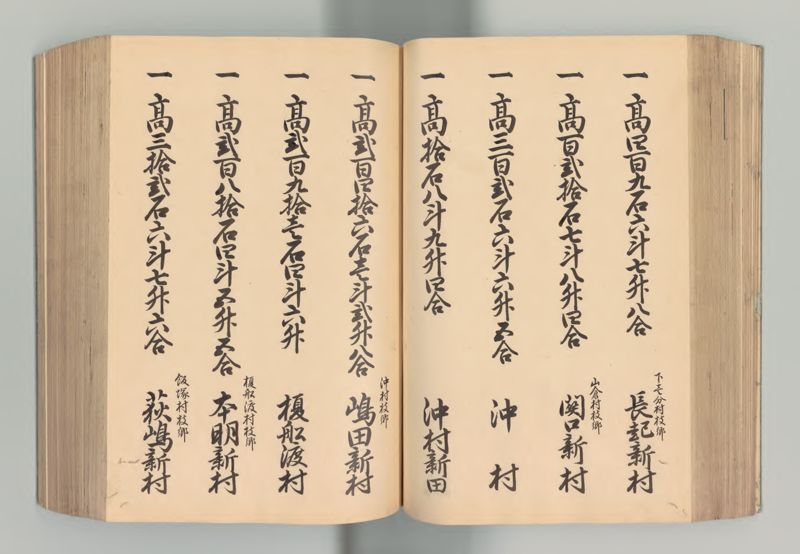 一 高四百九石六斗七升八合
下モ分村枝郷
長起新村
一 高百弐拾石七斗八升四合
山倉村枝郷
関口新村
一 高三百弐石六斗六升五合
沖村
一 高拾石八斗九升四合
沖村新田
一 高弐百四拾六石壱斗弐升八合
沖村枝郷
嶋田新村
一 高弐百九拾壱石四斗六升
榎舩渡村
一 高弐百八拾石四斗五升五合
榎舩渡村枝郷
本明新村
一 高三拾弐石六斗七升六合
飯塚村枝郷
荻嶋新村